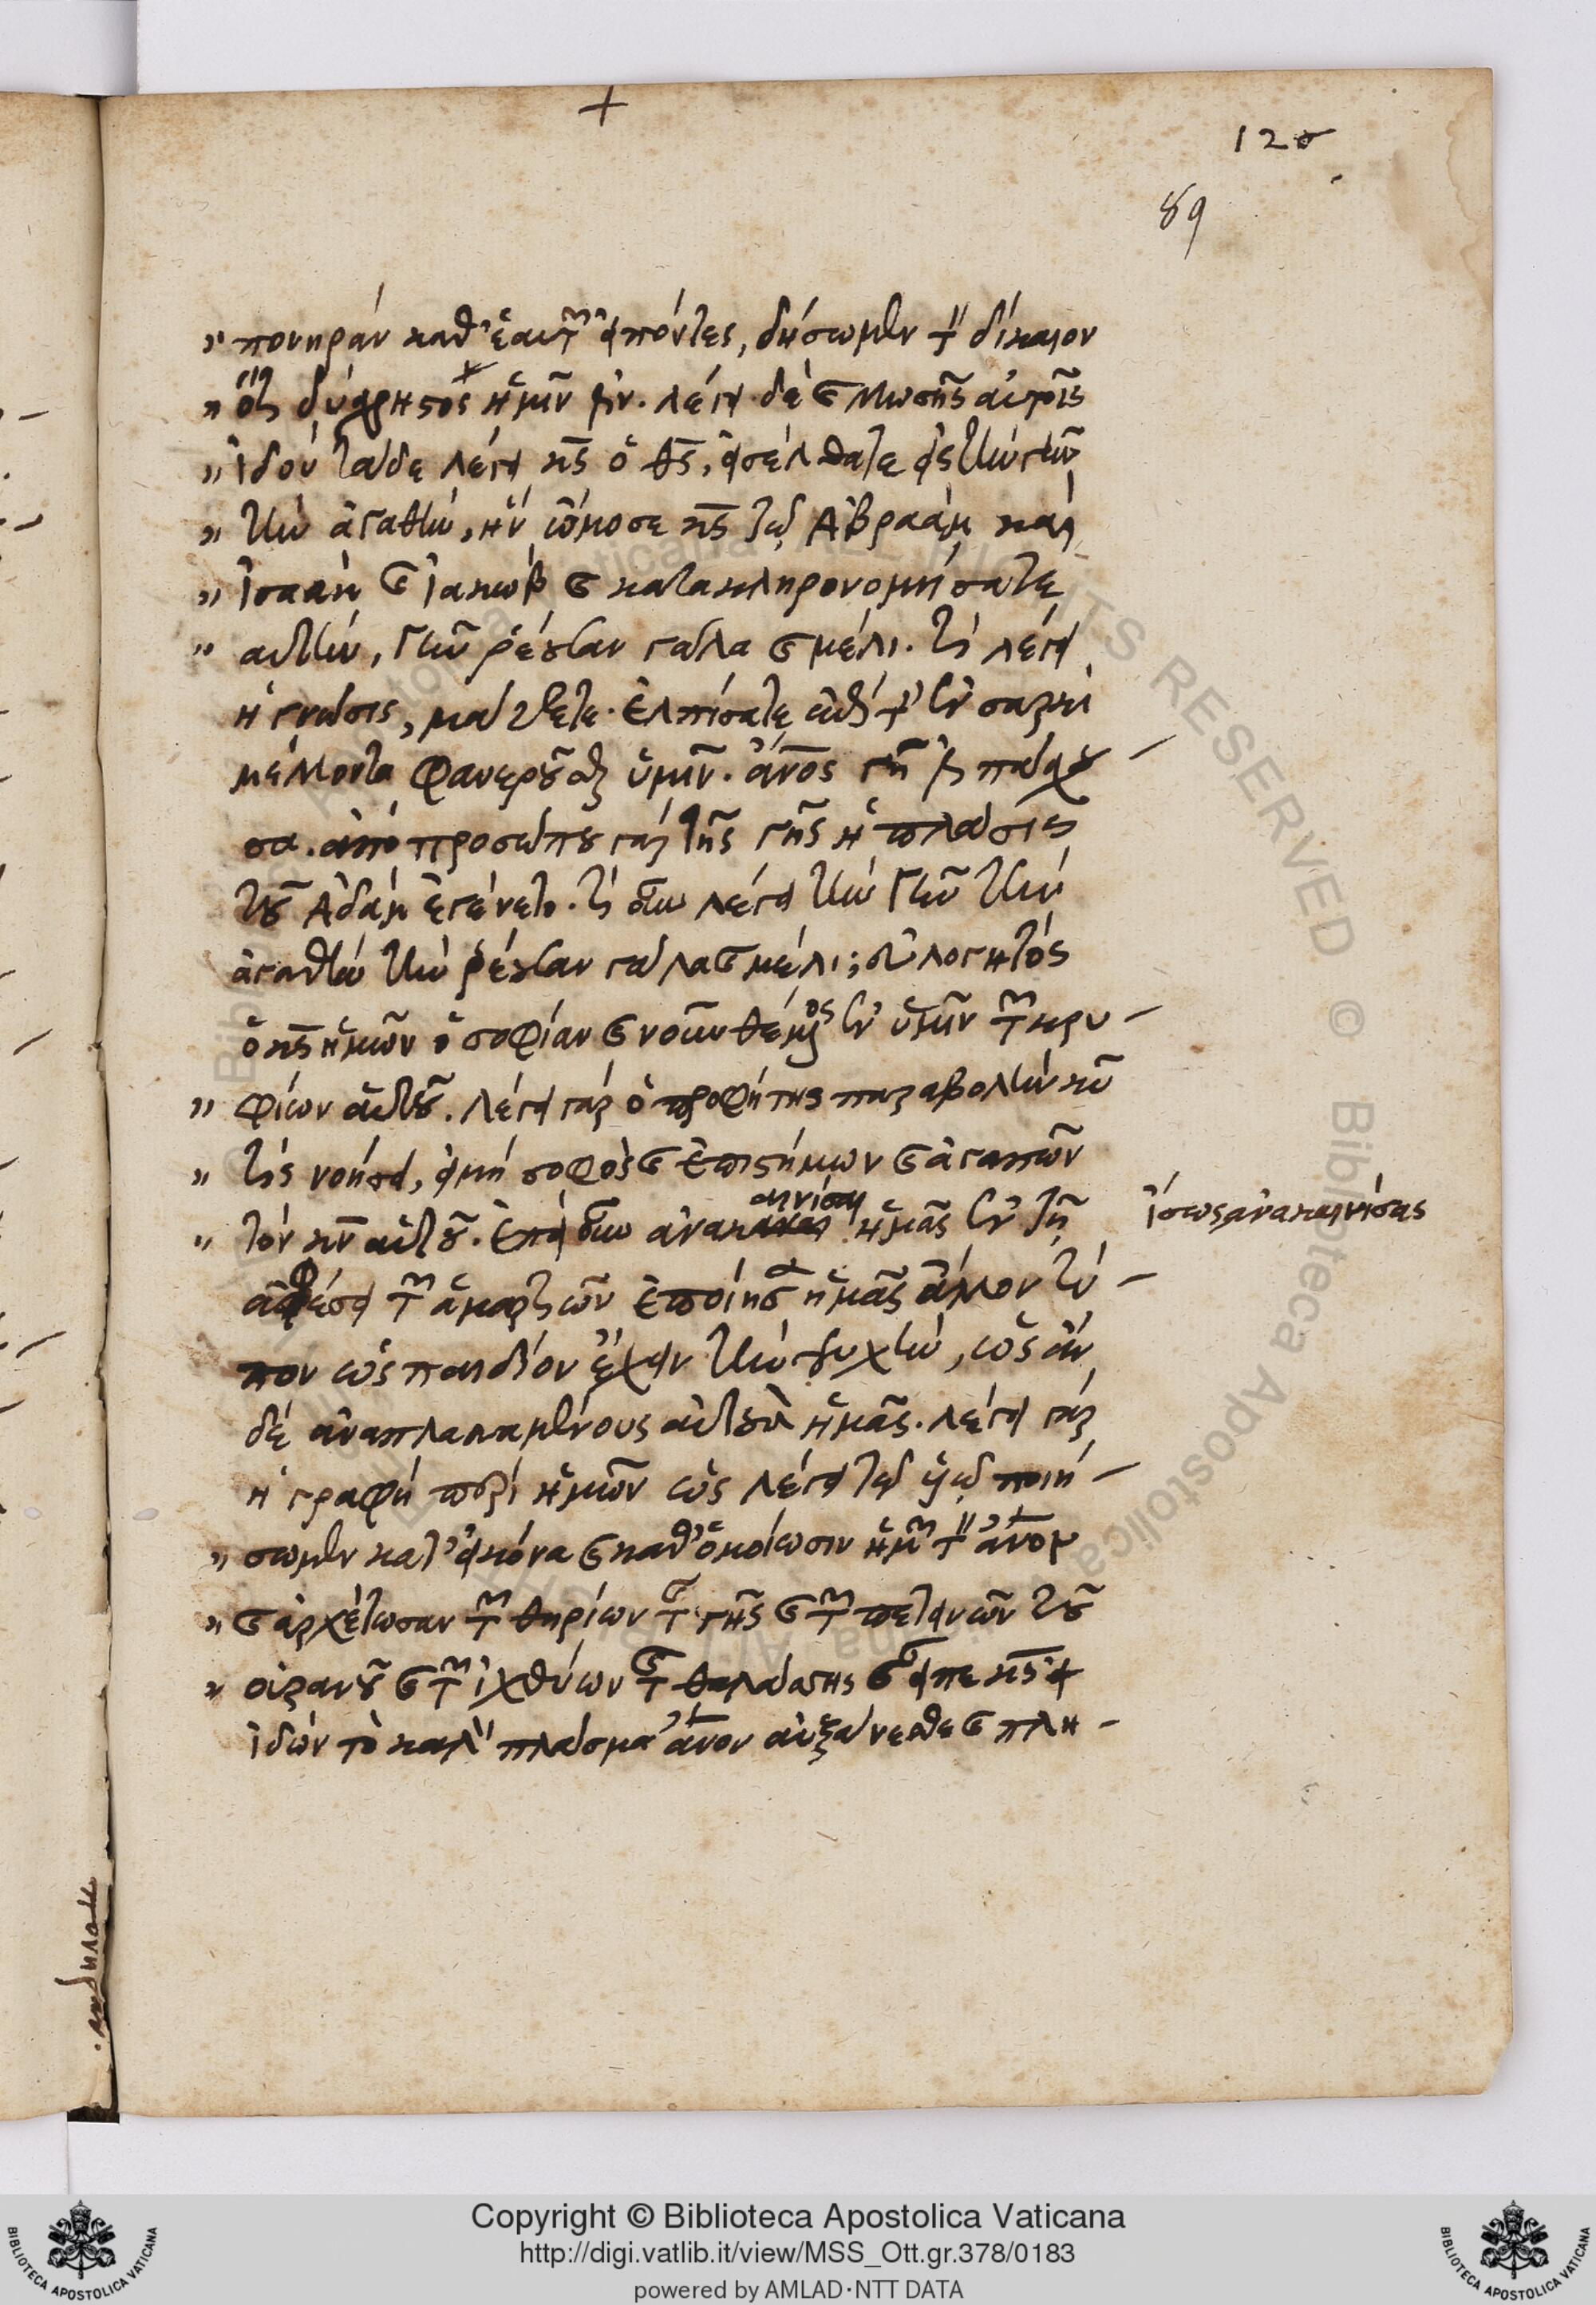 +
120
89
" πονηρὰν καθ' ἑαυτῶν εἰπόντες, δήσωμεν τὸν δίκαιον
" ὅτι δύσχρηστος ἡμῖν ἐστιν. λέγει δὲ καὶ Μωσῆς αὐτοῖς
" ἰδοὺ τάδε λέγει κς ὁ θς, εἰσέλθατε εἰς τὴν γῆν
" τὴν ἀγαθὴν, ἣν ὤμοσε κς τῷ Ἀβραὰμ καὶ
" Ἰσαὰκ καὶ Ἰακὼβ καὶ κατακληρονομήσατε
" αὐτὴν, γῆν ῥέουσαν γάλα καὶ μέλι. τί λέγει
ἡ γνῶσις, μάθετε. ἐλπίσατε ἐπὶ τὸν ἐν σαρκὶ
μέλλοντα φανεροῦσθαι ὑμῖν. ἄνος γῆ ἐστι πάσχου-
σα. ἀπὸ προσώπου γὰρ τῆς γῆς ἡ πλάσις
τοῦ Ἀδὰμ ἐγένετο. τί οὖν λέγει τὴν γῆν τὴν
ἀγαθὴν τὴν ῥέουσαν γάλα καὶ μέλι; εὐλογητὸς
ὁ κς ἡμῶν ὁ σοφίαν καὶ νοῦν θέμενος ἐν ὑμῖν τῶν κρυ-
" φίων αὐτοῦ. λέγει γὰρ ὁ προφήτης παραβολὴν κυ
" τίς νοήσει, εἰ μὴ σοφὸς καὶ ἐπιστήμων καὶ ἀγαπῶν
" τὸν κν αὐτοῦ. ἐπεὶ οὖν ἀνακαινίσας ἡμᾶς ἐν τῇ
ἴσως ἀνακαινίσας
ἀφέσει τῶν ἁμαρτιῶν ἐποίησεν ἡμᾶς ἄλλον τύ-
πον ὡς παιδίον ἔχειν τὴν ψυχὴν, ὡς ἂν
δὲ ἀναπλασσαμένους αὐτοὺς ἡμᾶς. λέγει γὰρ
ἡ γραφὴ περὶ ἡμῶν ὡς λέγει τῷ υἱῷ ποιή-
" σωμεν κατ' εἰκόνα καὶ καθ' ὁμοίωσιν ἡμῶν τὸν ἄνον
" καὶ ἀρχέτωσαν τῶν θηρίων τῆς γῆς καὶ τῶν πετεινῶν τοῦ
" οὐρανοῦ καὶ τῶν ἰχθύων τῆς θαλάσσης καὶ εἶπε κς
ἰδὼν τὸ καλὸν πλάσμα ἄνον αὐξάνεσθε καὶ πλη-
Copyright © Biblioteca Apostolica Vaticana
http://digi.vatlib.it/view/MSS_Ott.gr.378/0183
powered by AMLAD·NTT DATA